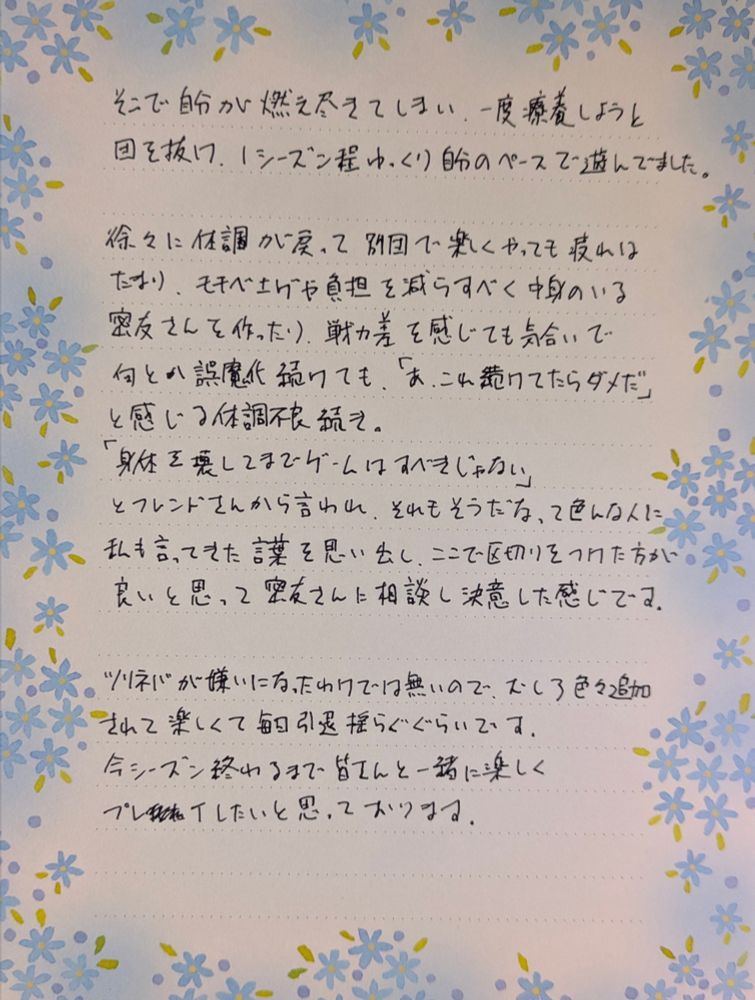 そこで自分が燃え尽きてしまい、一度療養しようと
団を抜け、1シーズン程ゆっくり自分のペースで遊んでました。
徐々に体調が戻って別団で楽しくやっても疲れは
たまり、モチベ上げや負担を減らすべく中身のいる
密友さんを作ったり、戦力差を感じても気合いで
何とか誤魔化し続けても、「あ、これ続けてたらダメだ」
と感じる体調不良続き。
「身体を壊してまでゲームはすべきじゃない」
とフレンドさんから言われ、それもそうだなって色んな人に
私も言ってきた言葉を思い出し、ここで区切りをつけた方が
良いと思って密友さんに相談し決意した感じです。
ツリネバが嫌いになったわけでは無いので、むしろ色々追加
されて楽しくて毎日引退揺らぐぐらいです。
今シーズン終わるまで皆さんと一緒に楽しく
プレイしたいと思っております。